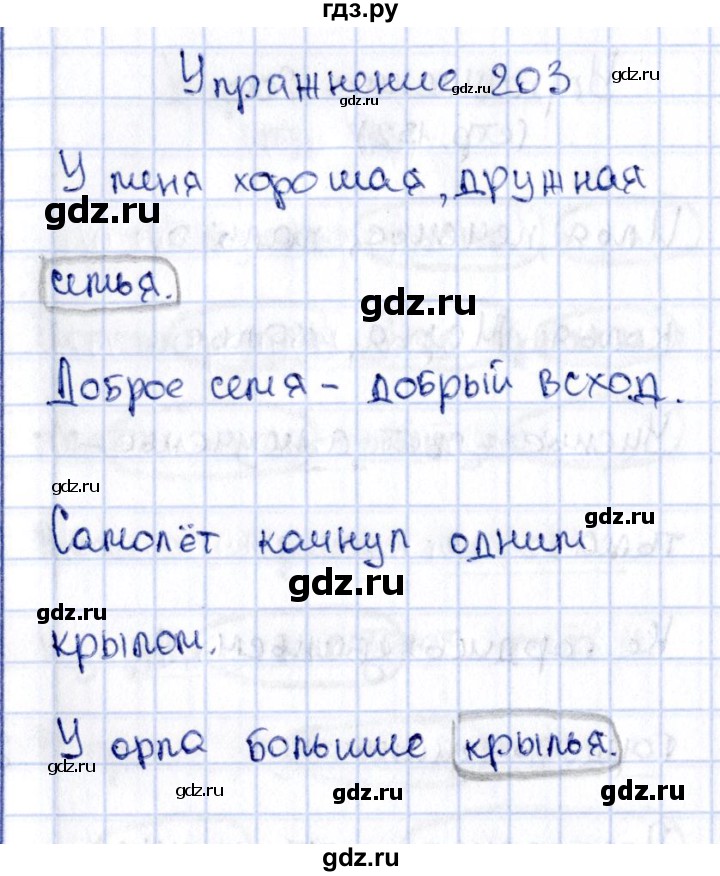 гдз.ру
Упражнение 203
gdz.ru
gdz.ru
gdz.ru
У меня хорошая, дружная
gdz.ru
семья.
gdz.ru
Доброе семя - добрый всход.
gdz.ru
gdz.ru
Самолёт качнул одним
gdz.ru
gdz.ru
крылом.
У орла большие крылья.
gdz.ru
gdz.ru
gdz.ru
gdz.ru
gdz.ru